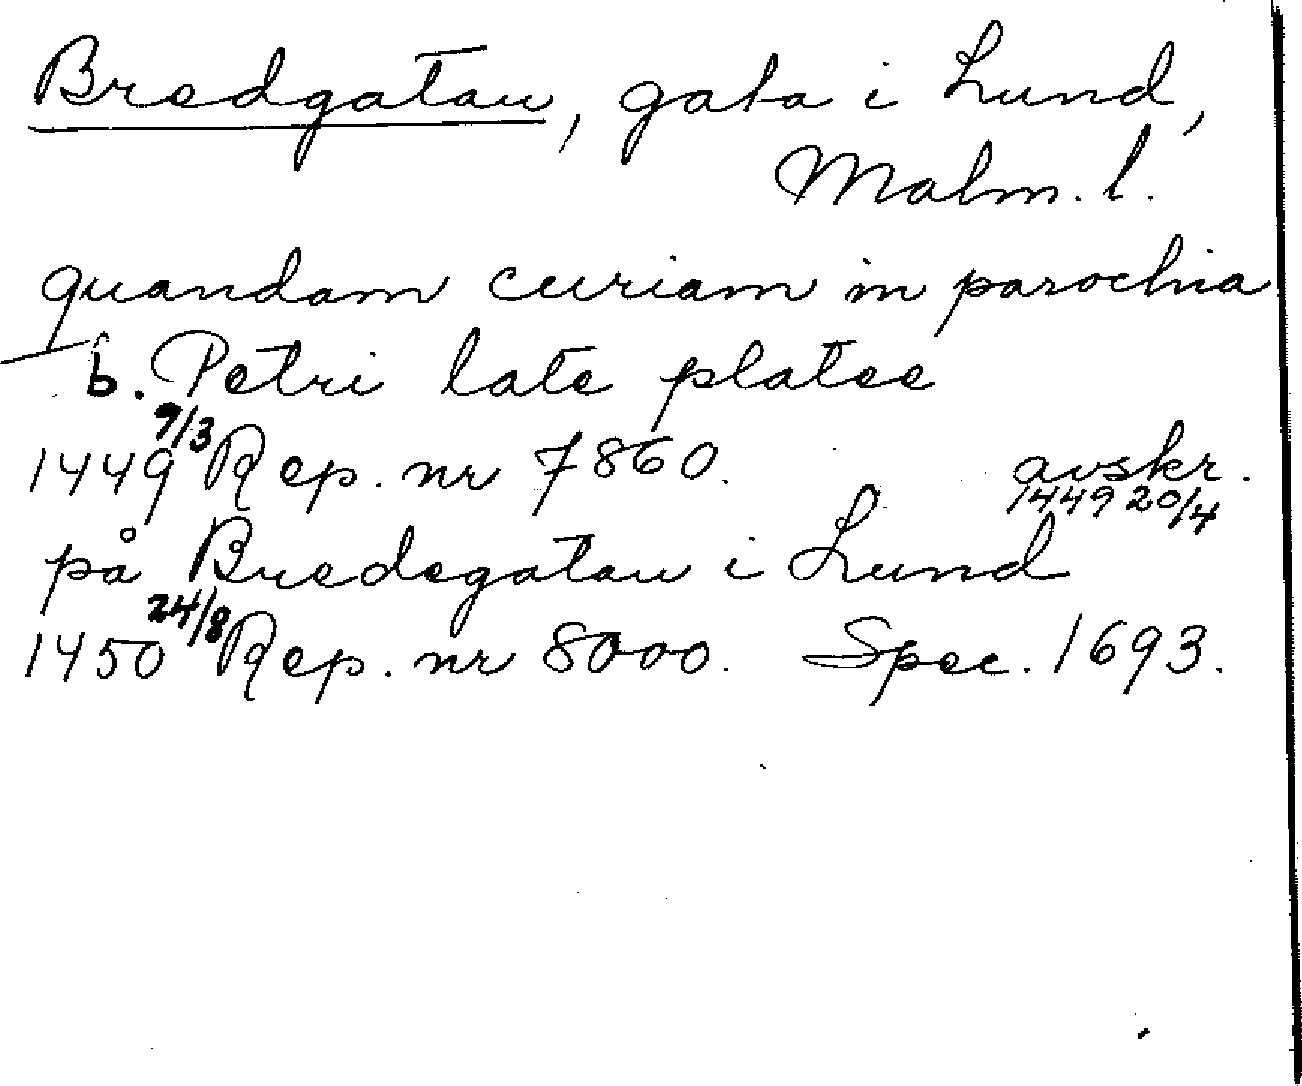 Bredgatan, gata i Lund,
Malm. l.
quandam curiam in parochia
b. Petri late platee
1449 9/3 Rep. nr 7860. avskr.
1449 20/4
på Bredegatan i Lund
1450 24/8 Rep. nr 8000. Spec. 1693.